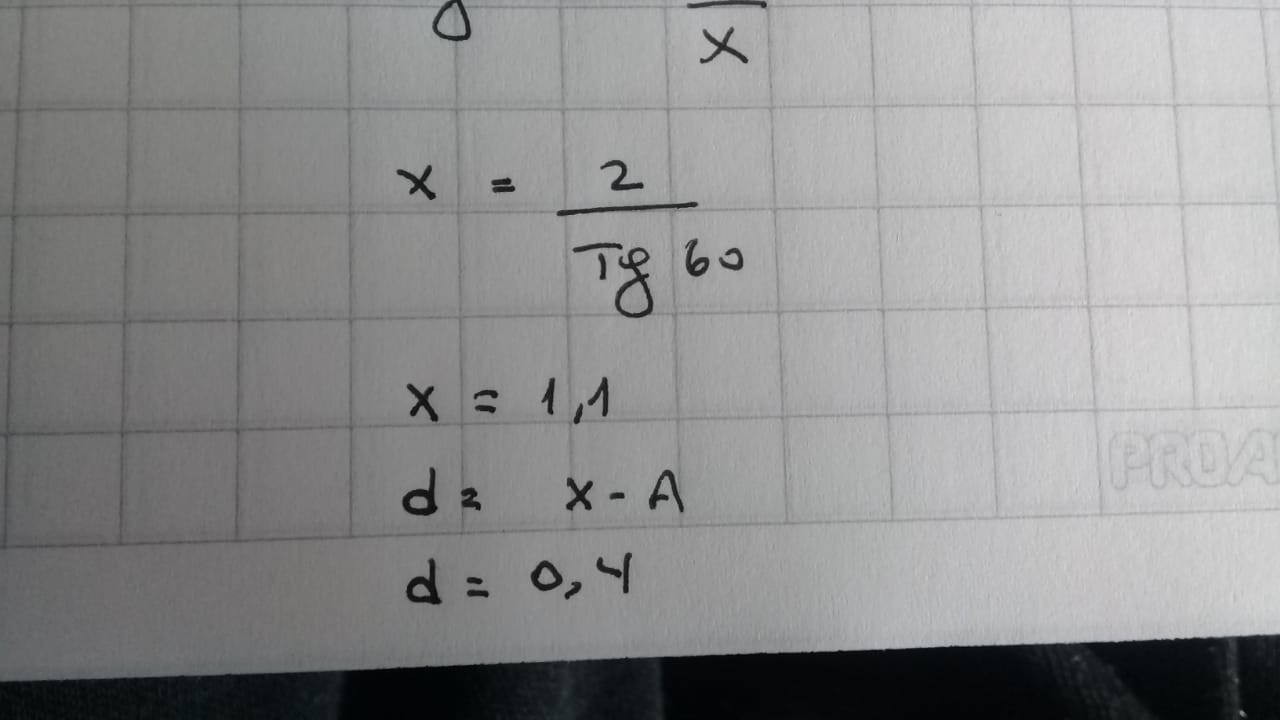 x
x = 2
Tg 60
x = 1,1
d = x - A
d = 0,4
PROA